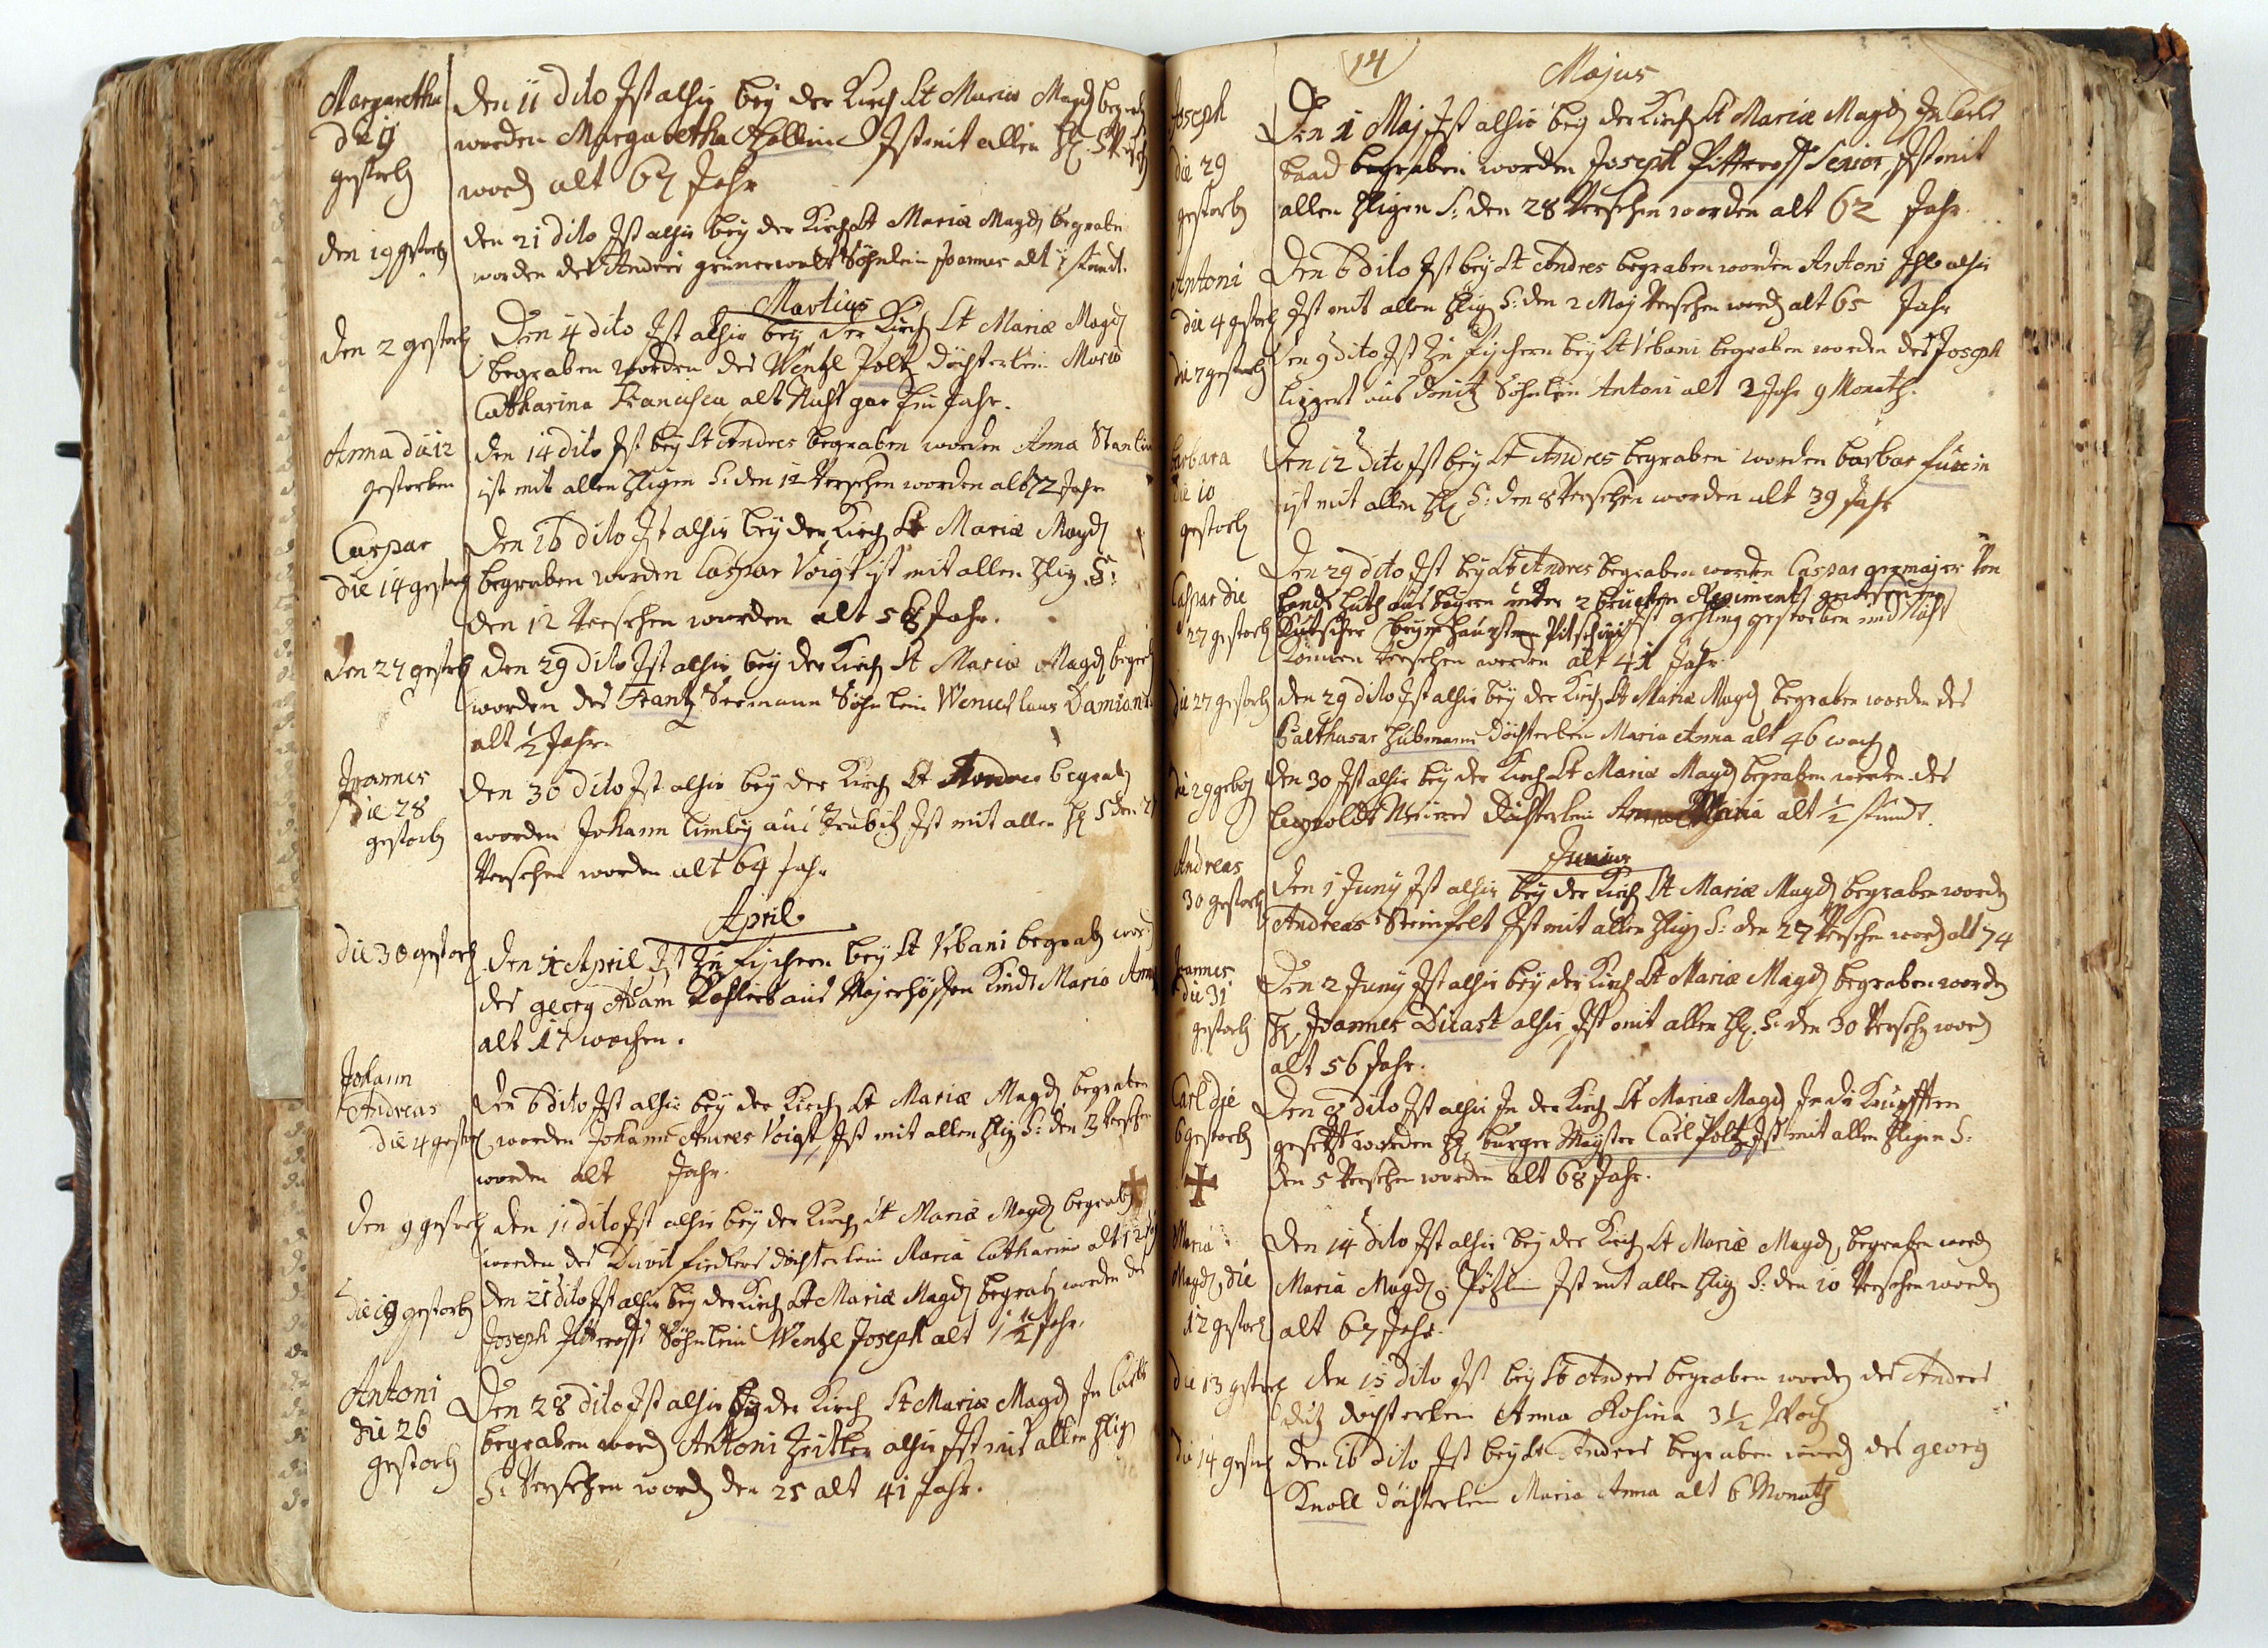 Margaretha
die 9
gestorb
Den 11 dito Ist alhir bey der Kirch St Mariæ Magd begrab
worden Margaretha Ist mit allen Hl. S
word alt 67 Jahr
den 19 gestorb
den 21 dito Ist alhir bey der Kirch St Mariæ Magd begrabe
worden des Anderes grünerwalt Söhnlein Joannes alt 1 stund.
Martius
den 2 gestorb
Den 4 dito Ist alhir bey der Kirch St Mariæ Magd
begraben worden des Wentzl Poltz Döchterlein Maria
Catharina Francisca alt Nicht gar Jahr.
Anna die 12
gestorben
den 14 dito Ist bey St Andres begraben worden Anna Stanlin
ist mit allen Hligen S: den 12 Versehen worden alt 72 Jahr
Caspar
die 14 gestorb
Den 16 dito Ist alhir bey der Kirch St Mariæ Magd
begraben worden Caspar Voigt ist mit allen Hlig S:
den 12 Versehen worden alt 58 Jahr.
den 27 gestorb
den 29 dito Ist alhir bey der Kirch St Mariæ Magd begrab
worden des Frantz Seemann Söhnlein Wenceslaus Damianus
alt 1/2 Jahr.
Joannes
die 28
gestorb
den 30 dito Ist alhir bey der Kirch St Andres begrab
worden Johann aus Ist mit allen Hl S den
Versehen worden alt 64 Jahr
April
die 30 gestorb
Den 1 April Ist Zu Fischern bey St Vrbani begrab word
des georg Adam aus Majerhöffen Kindt Maria Anna
alt 17 wochen.
Johann
Andreas
die 4 gestorb
Den 6 dito Ist alhir bey der Kirch St Mariæ Magd begraben
worden Johann Andres Voigt Ist mit allen Hlig S: den 3 Versehen
worden alt Jahr.
den 9 gestorb
den 11 dito Ist alhir bey der Kirch St Mariæ Magd begrab
worden des Davit Fiedlers döchterlein Maria Catharina alt 12
die 19 gestorb
den 21 dito Ist alhir bey der Kirch St Mariæ Magd begrab worden des
Joseph Pittroff Söhnlein Wentzl Joseph alt 1 1/2 Jahr.
Antoni
die 26
gestorb
Den 28 dito Ist alhir bey der Kirch St Mariæ Magd In Carls
begraben word Antoni alhir Ist mit allen Hlig
S: Versehen word den 25 alt 41 Jahr.
14
Majus
Joseph
die 29
gestorb
Den 1 Maj Ist alhir bey der Kirch St Mariæ Magd In Carls
baad begraben worden Joseph Pittroff Senior, Ist mit
allen Hligen S: den 28 Versehen worden alt 62 Jahr
Antoni
die 4 gestorb
Den 6 dito Ist bey St Andres begraben worden Antoni alhir
Ist mit allen Hlig S: den 2 Maj Versehen word alt 65 Jahr
die 7 gestorb
Den 9 dito Ist Zu Fischern bey St Vrbani begraben worden des Joseph
Lippert aus Donitz Söhnlein Antoni alt 2 Jahr 9 Monath.
Barbara
die 10
gestorb
Den 12 dito Ist bey St Andres begraben worden barbar Fuxin
ist mit allen Hl S: den 8 Versehen worden alt 39 Jahr
Caspar die
27 gestorb
Den 29 dito Ist bey St Andres begraben worden Caspar Von
Landts Huth aus bayern unter 2 brücken Regiments gewesener
Kutscher beym Hauptman ist gehling gestorben und Nicht
Können Versehen werden alt 41 Jahr
die 27 gestorb
den 29 dito Ist alhir bey der Kirch St Mariæ Magd begraben worden des
Balthasar Hübmann Döchterlein Maria Anna alt 46 woch
die 29 gebohr
den 30 Ist alhir bey der Kirch St Mariæ Magd begraben worden des
Leopoldt Döchterlein Anna Maria alt 1/2 stundt.
Junius
Andreas
30 gestorb
Den 1 Juny Ist alhir bey der Kirch St Mariæ Magd begraben word
Andreas Steinfelt Ist mit allen Hlig S: den 27 Versehen word alt 74
Joannes
die 31
gestorb
Den 2 Juny Ist alhir bey der Kirch St Mariæ Magd begraben word
H. Joannes Dicast alhir Ist mit allen Hl. S: den 30 Verseh word
alt 56 Jahr.
Carl die
6 gestorb
Den 8 dito Ist alhir In der Kirch St Mariæ Magd In die Krufften
gesetzt worden H. burger Mayster Carl Poltz Ist mit allen Hligen S:
den 5 Versehen worden alt 68 Jahr.
Maria
Magd die
12 gestorb
Den 14 dito Ist alhir bey der Kirch St Mariæ Magd, begraben word
Maria Magd: Ist mit allen Hlig S: den 10 Versehen word
alt 67 Jahr.
die 13 gestorb
den 15 dito Ist bey St Andres begraben word des Anderes
Dutz dochterlein Anna Rosina 3 1/2 Woch
die 14 gestorb
den 16 dito Ist bey St Anders begraben word des georg
Knoll döchterlein Maria Anna alt 6 Monath